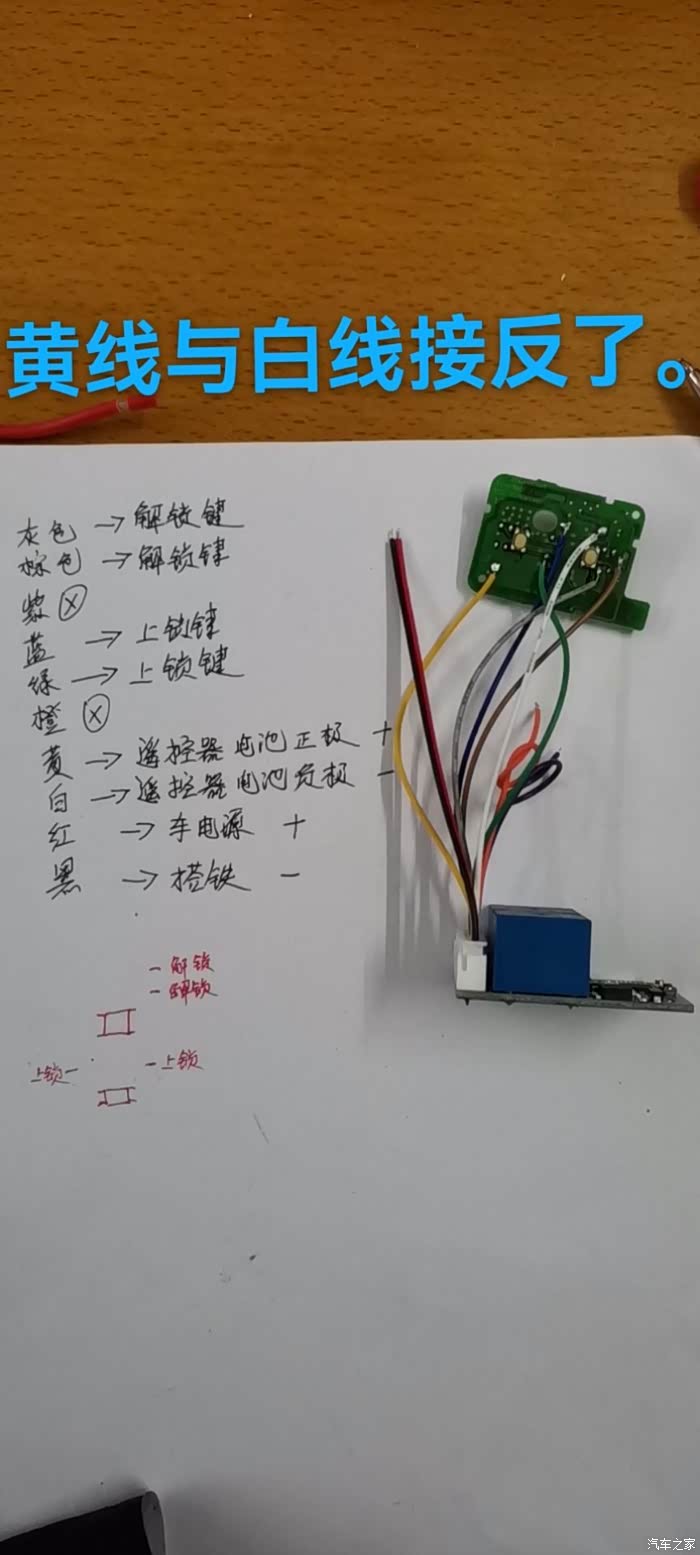 黄线与白线接反了。
灰色 → 解锁键
棕色 → 解锁键
紫 ⓧ
蓝 → 上锁键
绿 → 上锁键
橙 ⓧ
黄 → 遥控器电池正极 +
白 → 遥控器电池负极 -
红 → 车电源 +
黑 → 搭铁 -
- 解锁
- 解锁
上锁 -
- 上锁
汽车之家